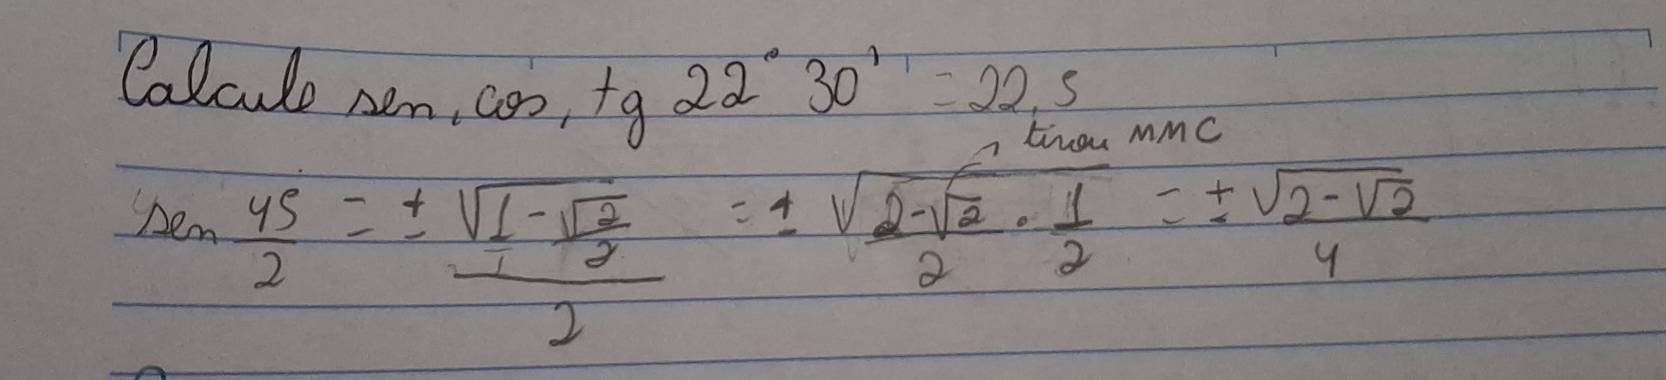 Calcule sen, cos, tg 22° 30' = 22,5
→ tirou MMC
sen 45/2 = ± √(1/1 - √2/2)/2 = ± √((2-√2)/2 · 1/2) = ± √(2-√2)/4